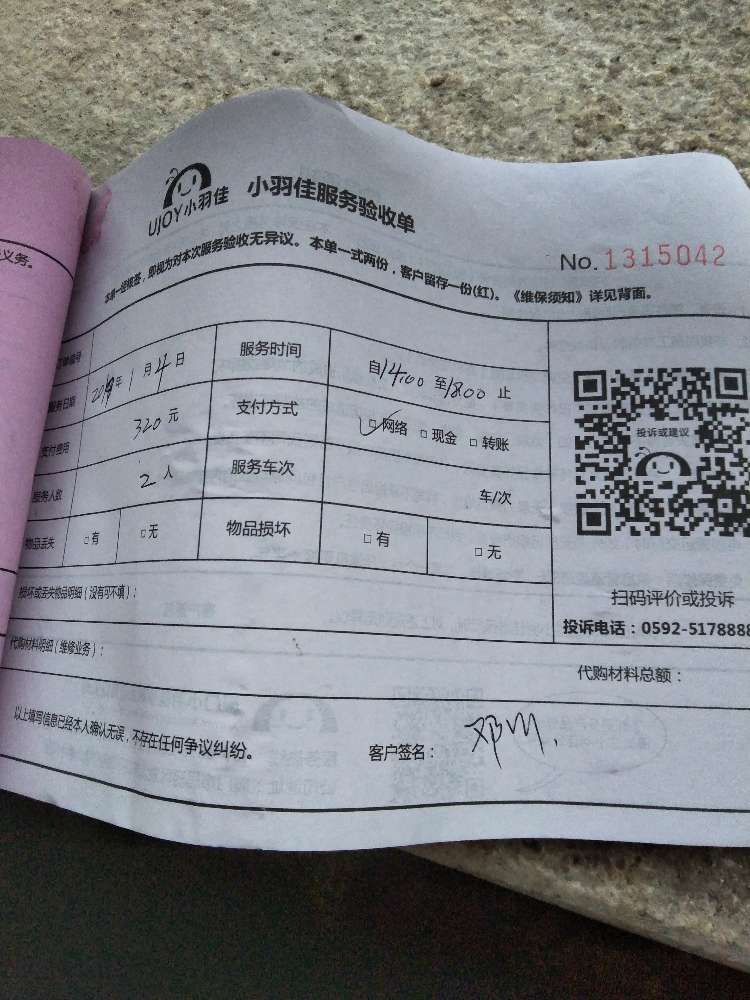 义务。
UJOY小羽佳
小羽佳服务验收单
No. 1315042
本单一经核签，即视为对本次服务验收无异议。本单一式两份，客户留存一份(红)。《维保须知》详见背面。
服务时间 自14:00至18:00止
服务日期 2019年1月4日
支付方式 ☑网络 □现金 □转账
支付费用 320元
服务人数 2人
服务车次 车/次
物品丢失 □有 □无
物品损坏 □有 □无
损坏或丢失物品明细（没有可不填）：
代购材料明细（维修业务）：
代购材料总额：
投诉或建议
扫码评价或投诉
投诉电话：0592-5178888
以上填写信息已经本人确认无误，不存在任何争议纠纷。
客户签名：